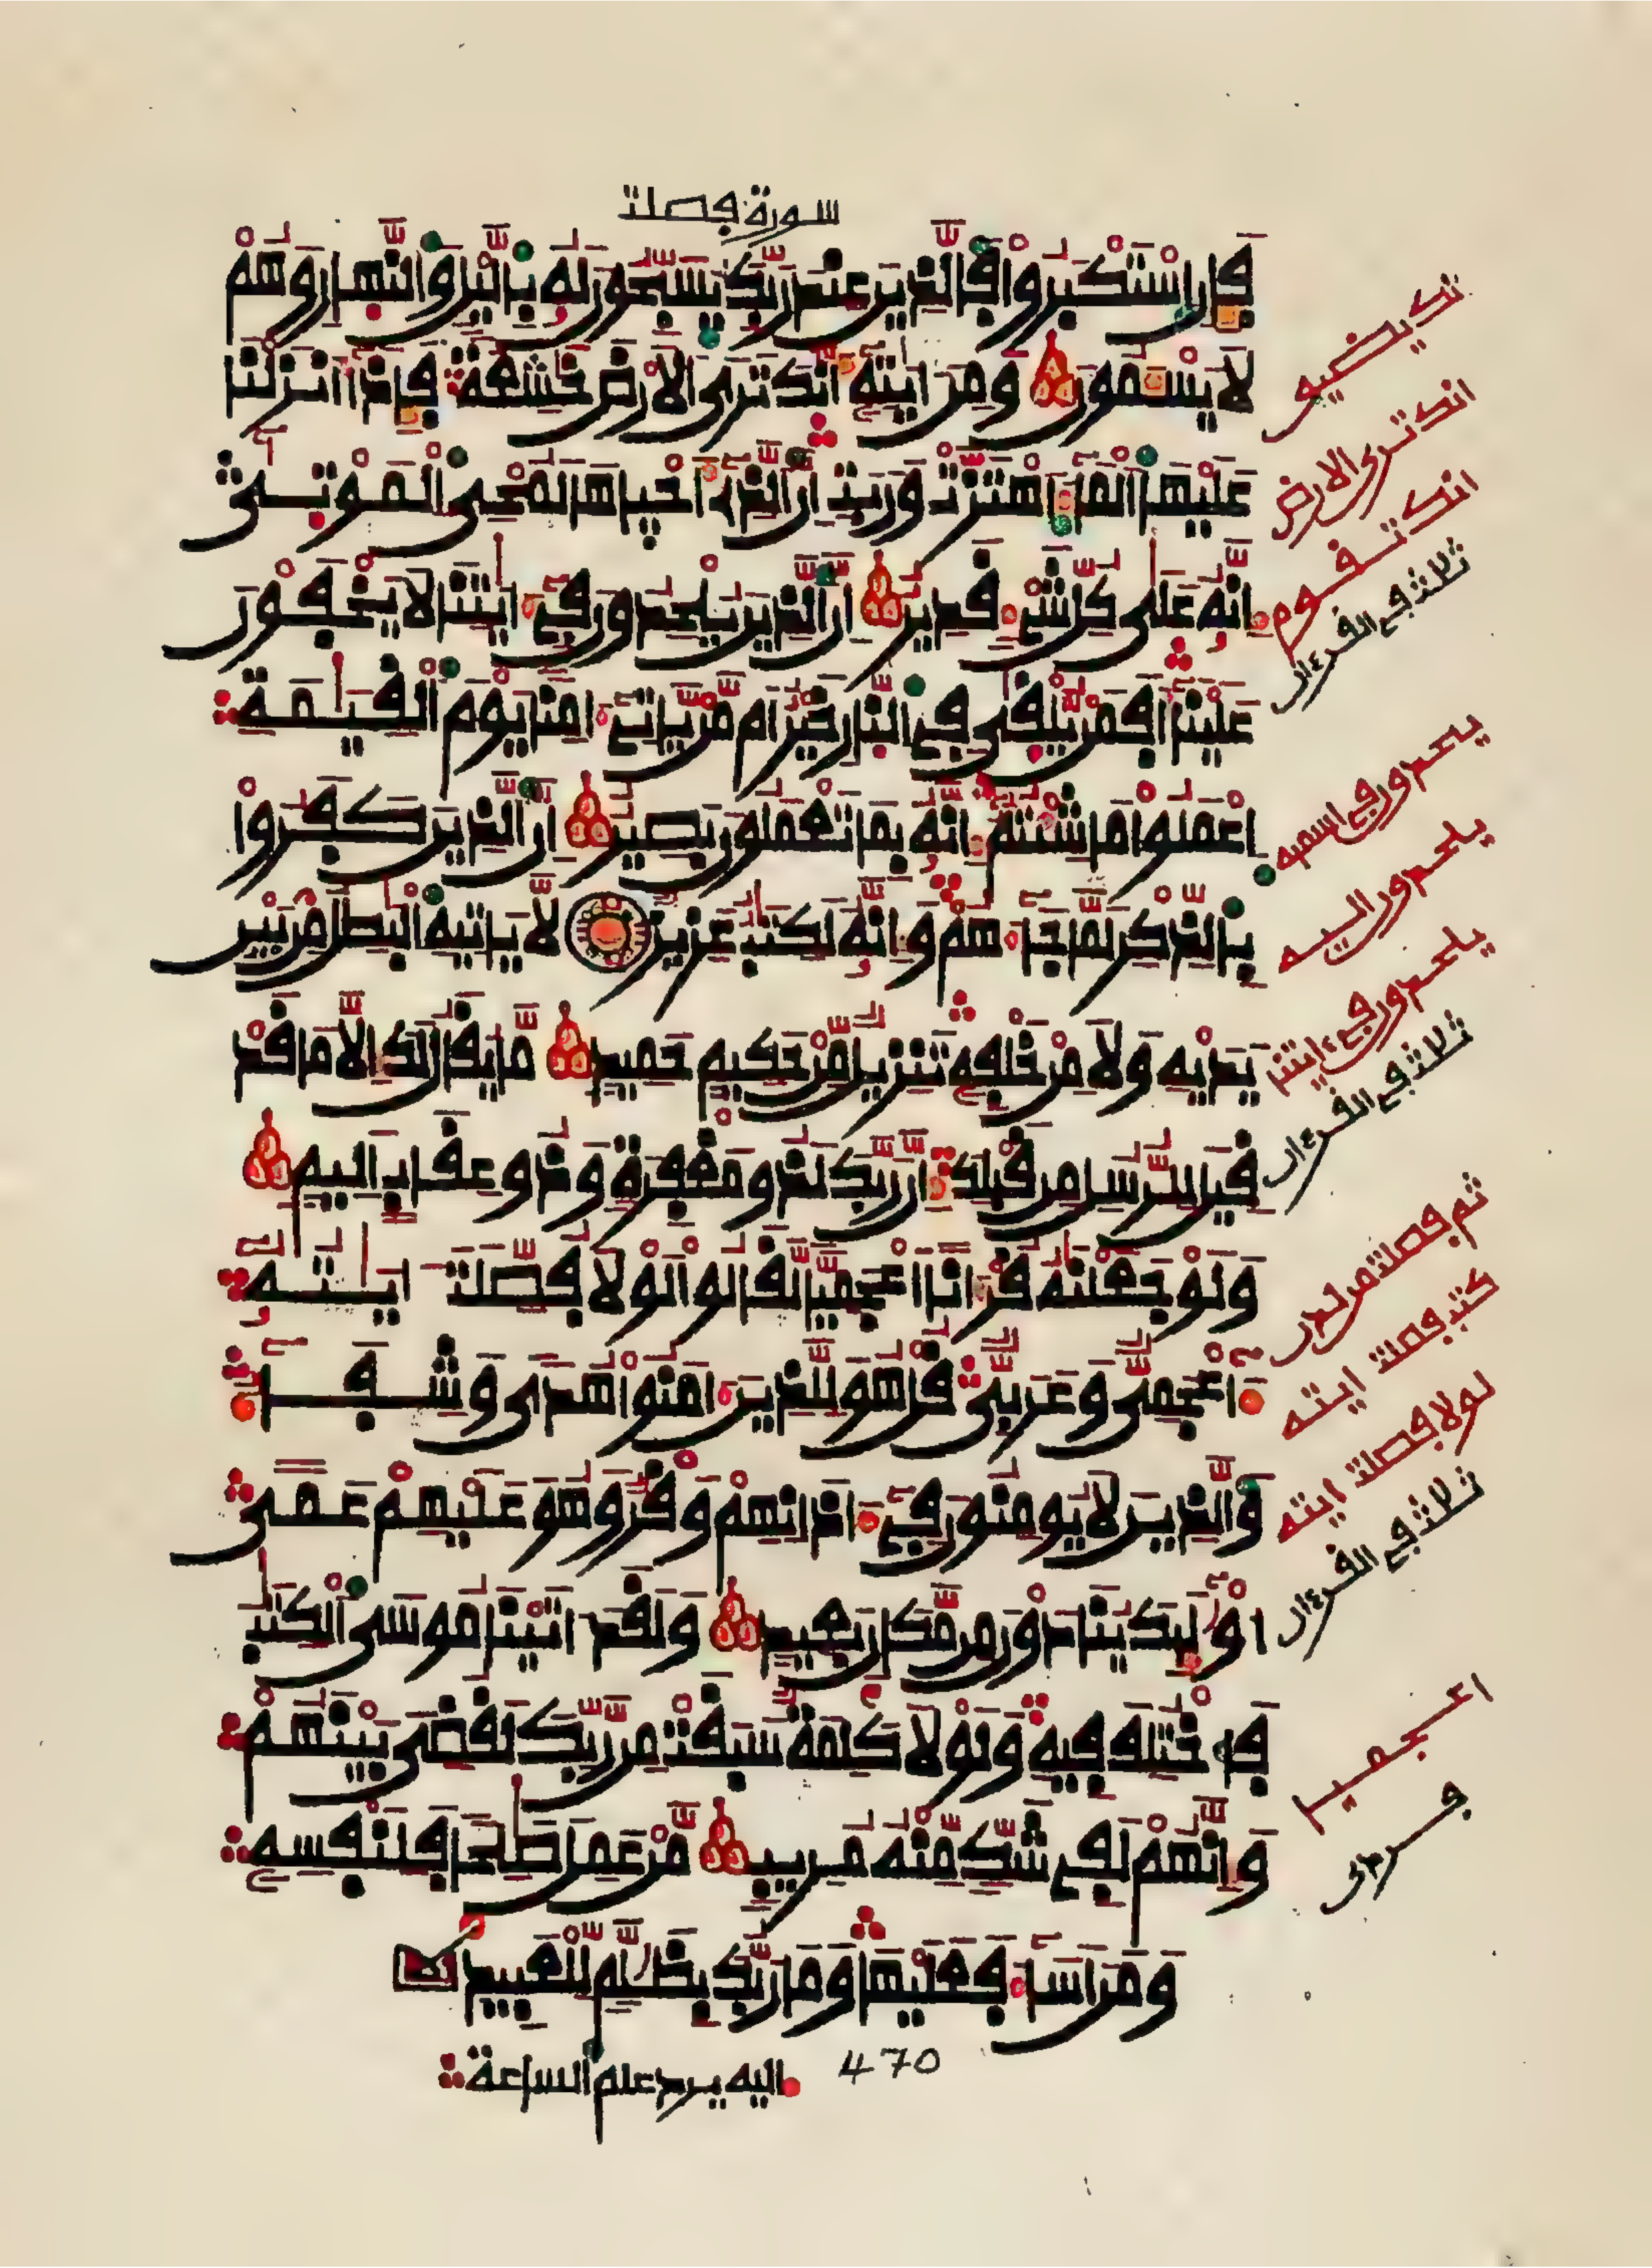 سورة فصلت
فإن استكبروا فالذين عند ربك يسبحون له باليل والنهار وهم
لا يسئمون ومن ايته انك ترى الارض خشعة فإذا انزلنا
عليها الماء اهتزت وربت ان الذي احياها لمحي الموتى
انه على كل شيء قدير ان الذين يلحدون في ايتنا لا يخفون
علينا افمن يلقى في النار خير ام من ياتي امنا يوم القيمة
اعملوا ما شئتم انه بما تعملون بصير ان الذين كفروا
بالذكر لما جاءهم وانه لكتب عزيز لا ياتيه البطل من بين
يديه ولا من خلفه تنزيل من حكيم حميد ما يقال لك الا ما قد
قيل للرسل من قبلك ان ربك لذو مغفرة وذو عقاب اليم
ولو جعلنه قرءانا اعجميا لقالوا لولا فصلت ايته
ءاعجمي وعربي قل هو للذين امنوا هدى وشفاء
والذين لا يومنون في اذانهم وقر وهو عليهم عمى
اولئك ينادون من مكان بعيد ولقد اتينا موسى الكتب
فاختلف فيه ولولا كلمة سبقت من ربك لقضي بينهم
وانهم لفي شك منه مريب من عمل صلحا فلنفسه
ومن اساء فعليها وما ربك بظلم للعبيد
470
اليه يرد علم الساعة
انك ترى الارض
انك تقوم
ثلثة في القرءان
يلحدون في اسميه
يلحدون اليه
يلحدون في ءايتنا
ثلثة في القرءان
ثم فصلت من لدن
كتب فصلت ايته
لولا فصلت ايته
ثلثة في القرءان
اعجميا